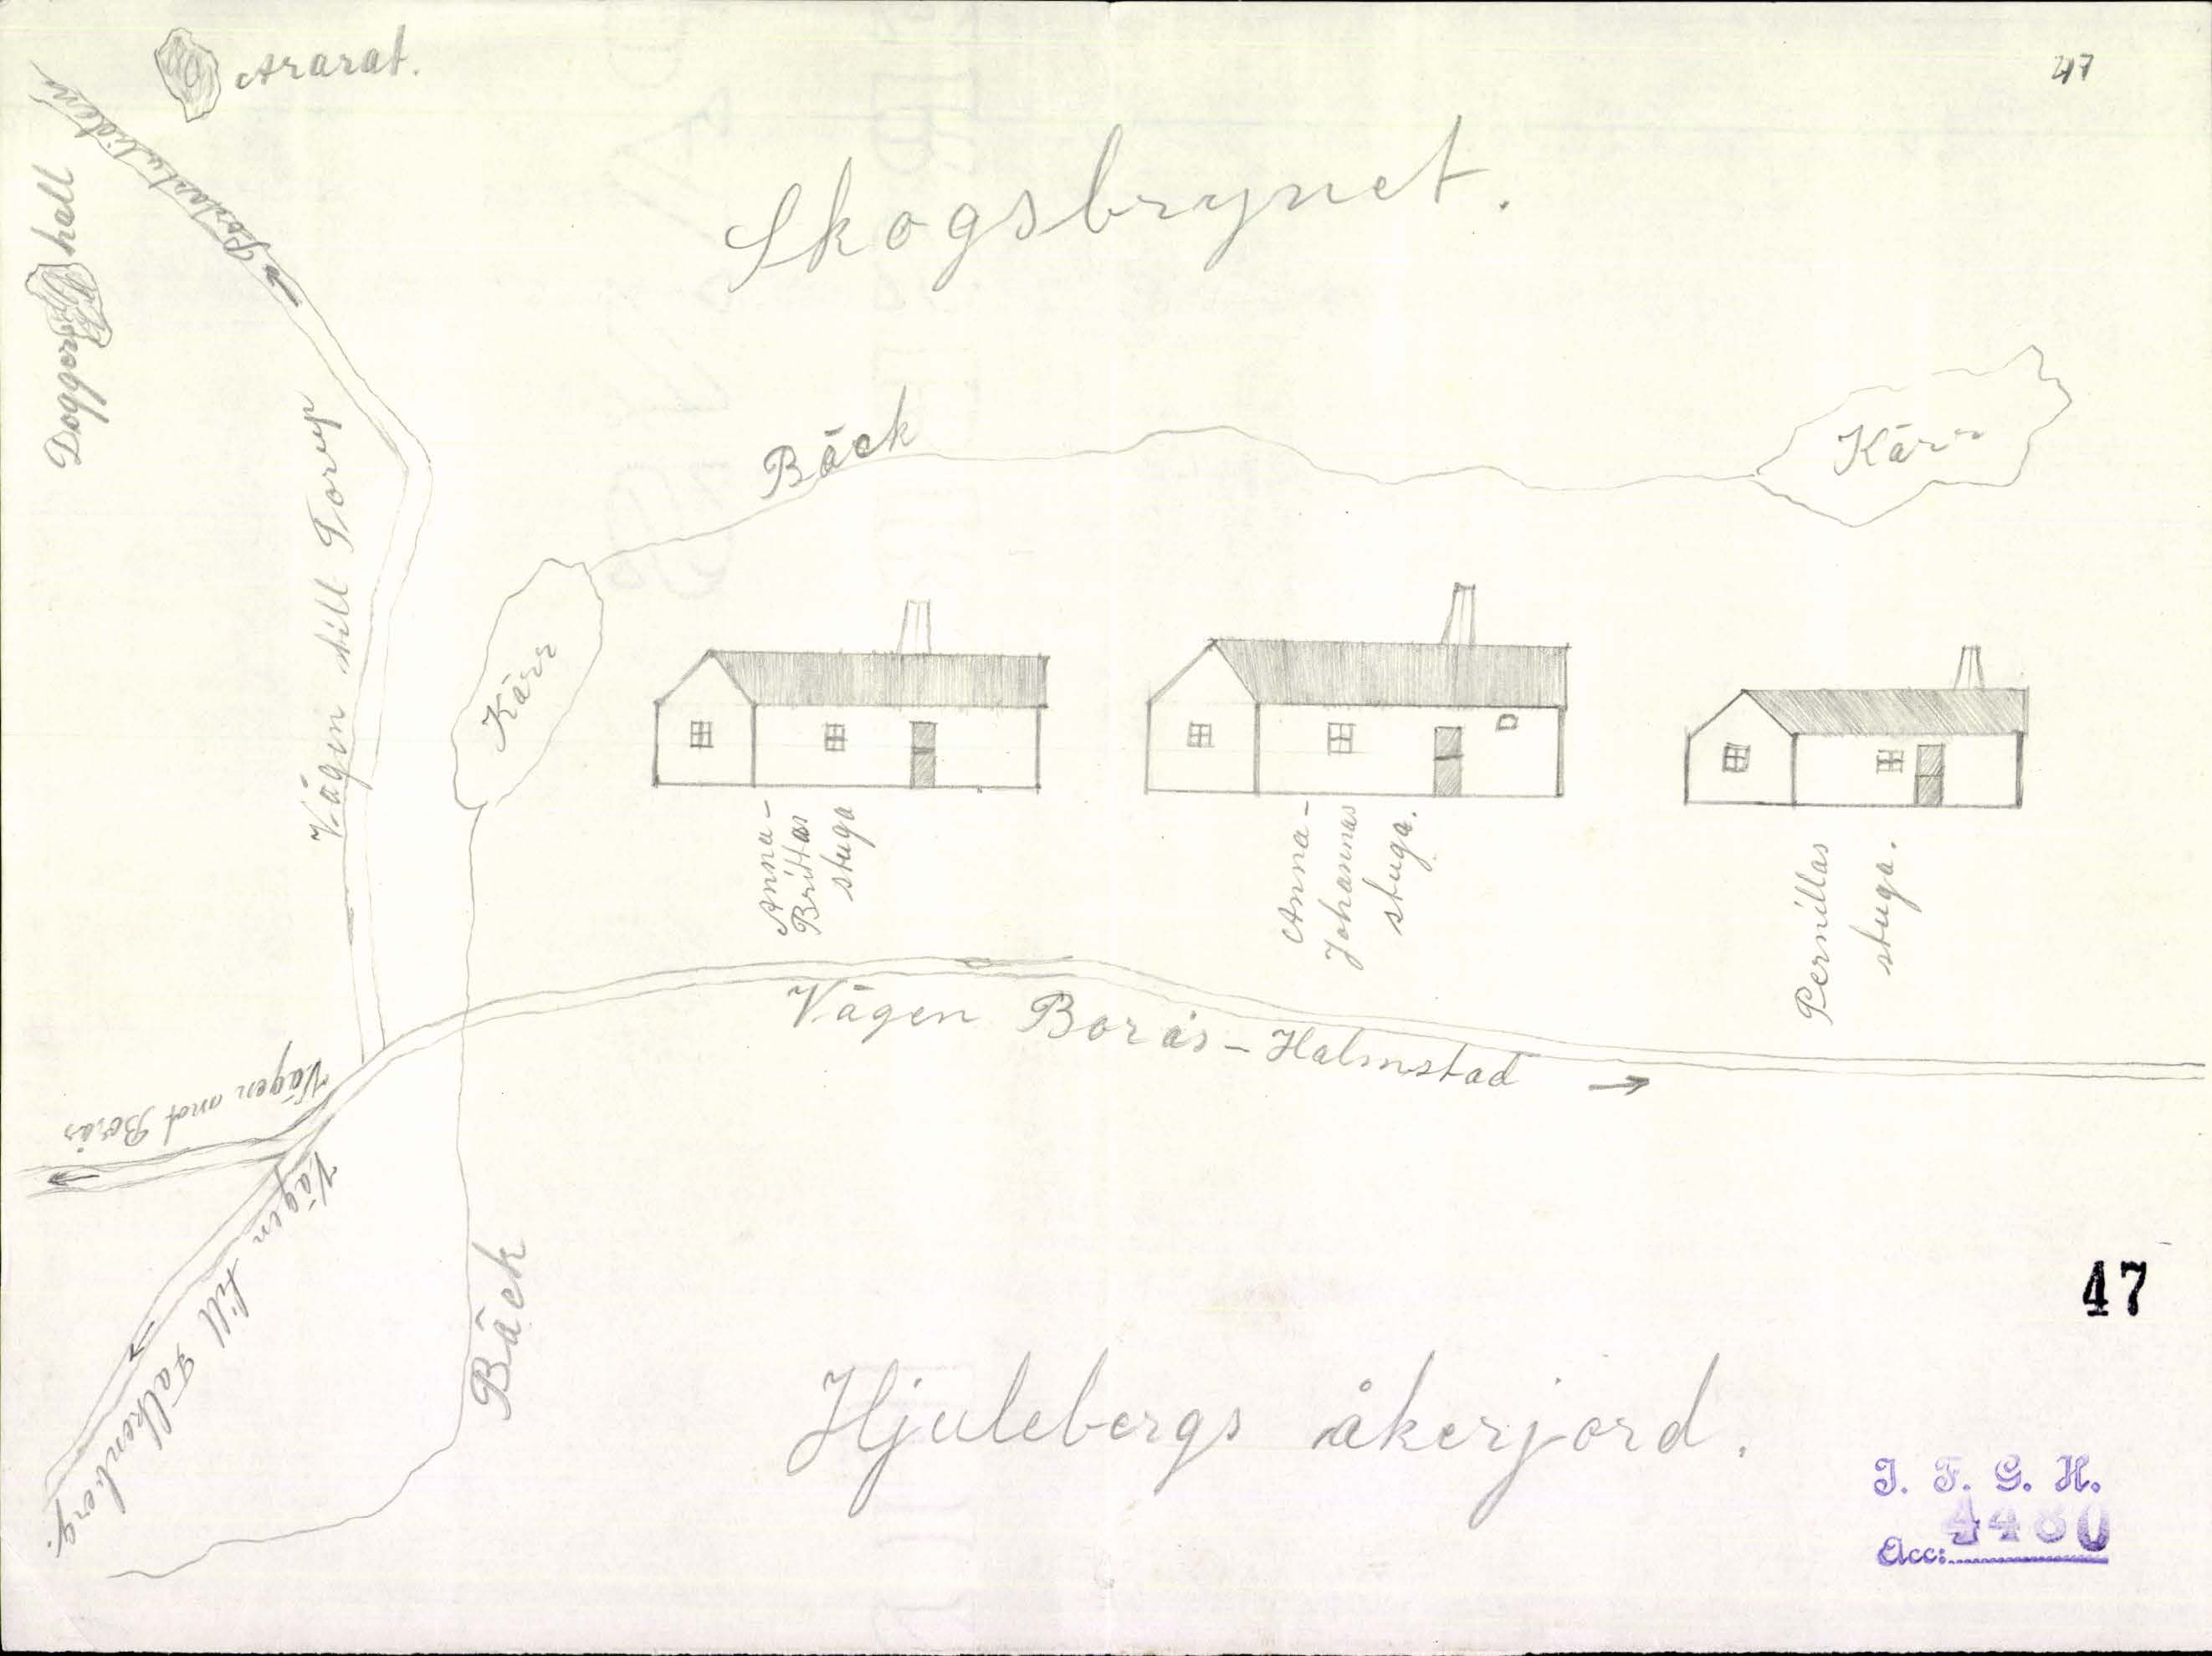 Ararat.
47
Skogsbrynet.
hall
Bäck
Kärr
Vägen till Torp
Kärr
Anna-
Brittas
stuga
Anna-
Johannas
stuga.
Pernillas
stuga.
Vägen Borås-Halmstad
Vägen mot Borås
Vägen till Falkenberg.
Bäck
47
Hjulebergs åkerjord.
I. F. G. H.
Acc: 4480